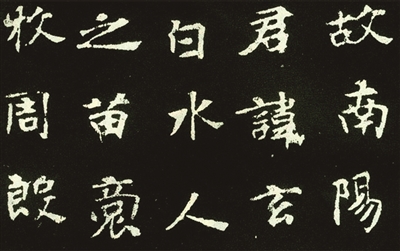 故南陽
君諱玄
白水人
之苗裔
牧周殷